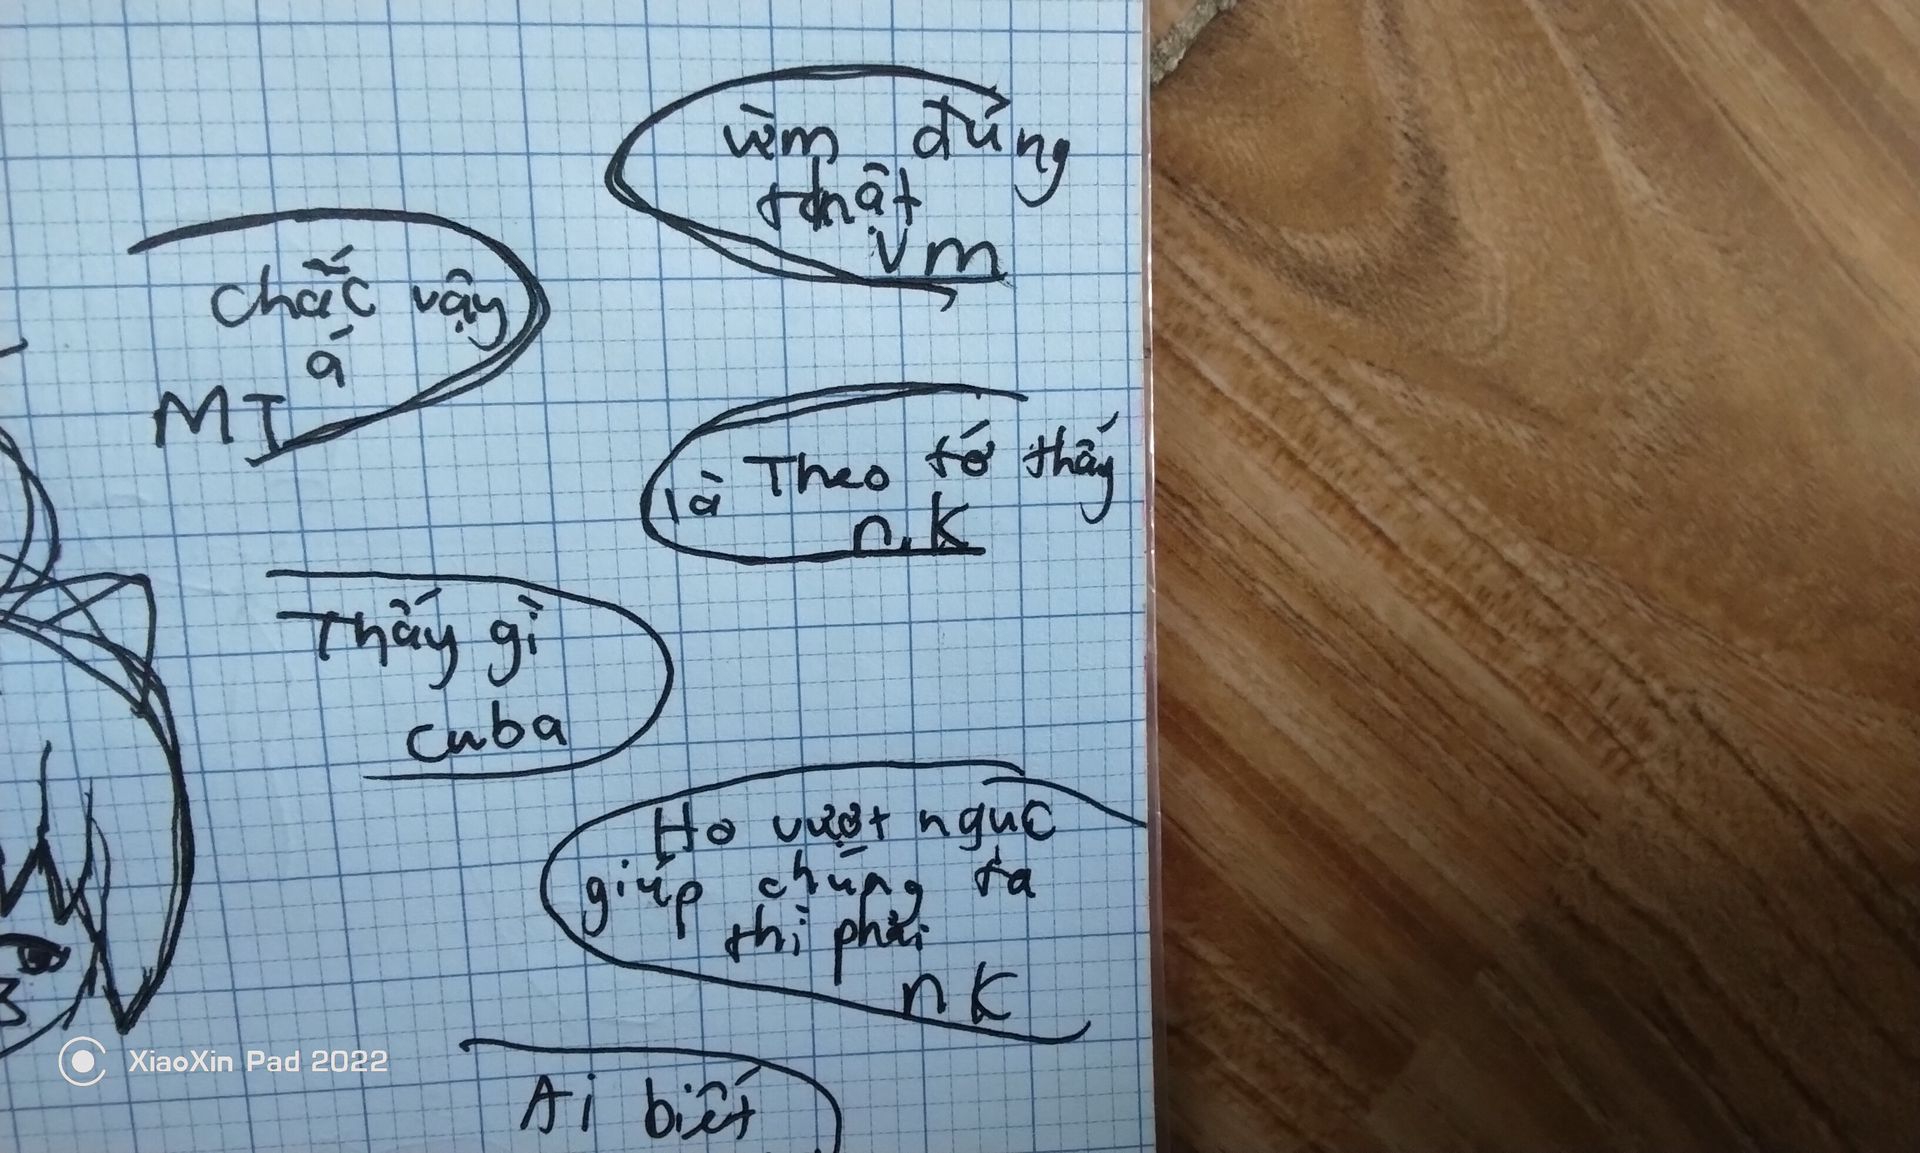 vèm đúng
thật
Vm
chắc vậy
á
MI
Theo tớ thấy
là
n.K
Thấy gì
cuba
Họ vượt ngục
giúp chúng ta
thì phải
nK
Ai biết
XiaoXin Pad 2022